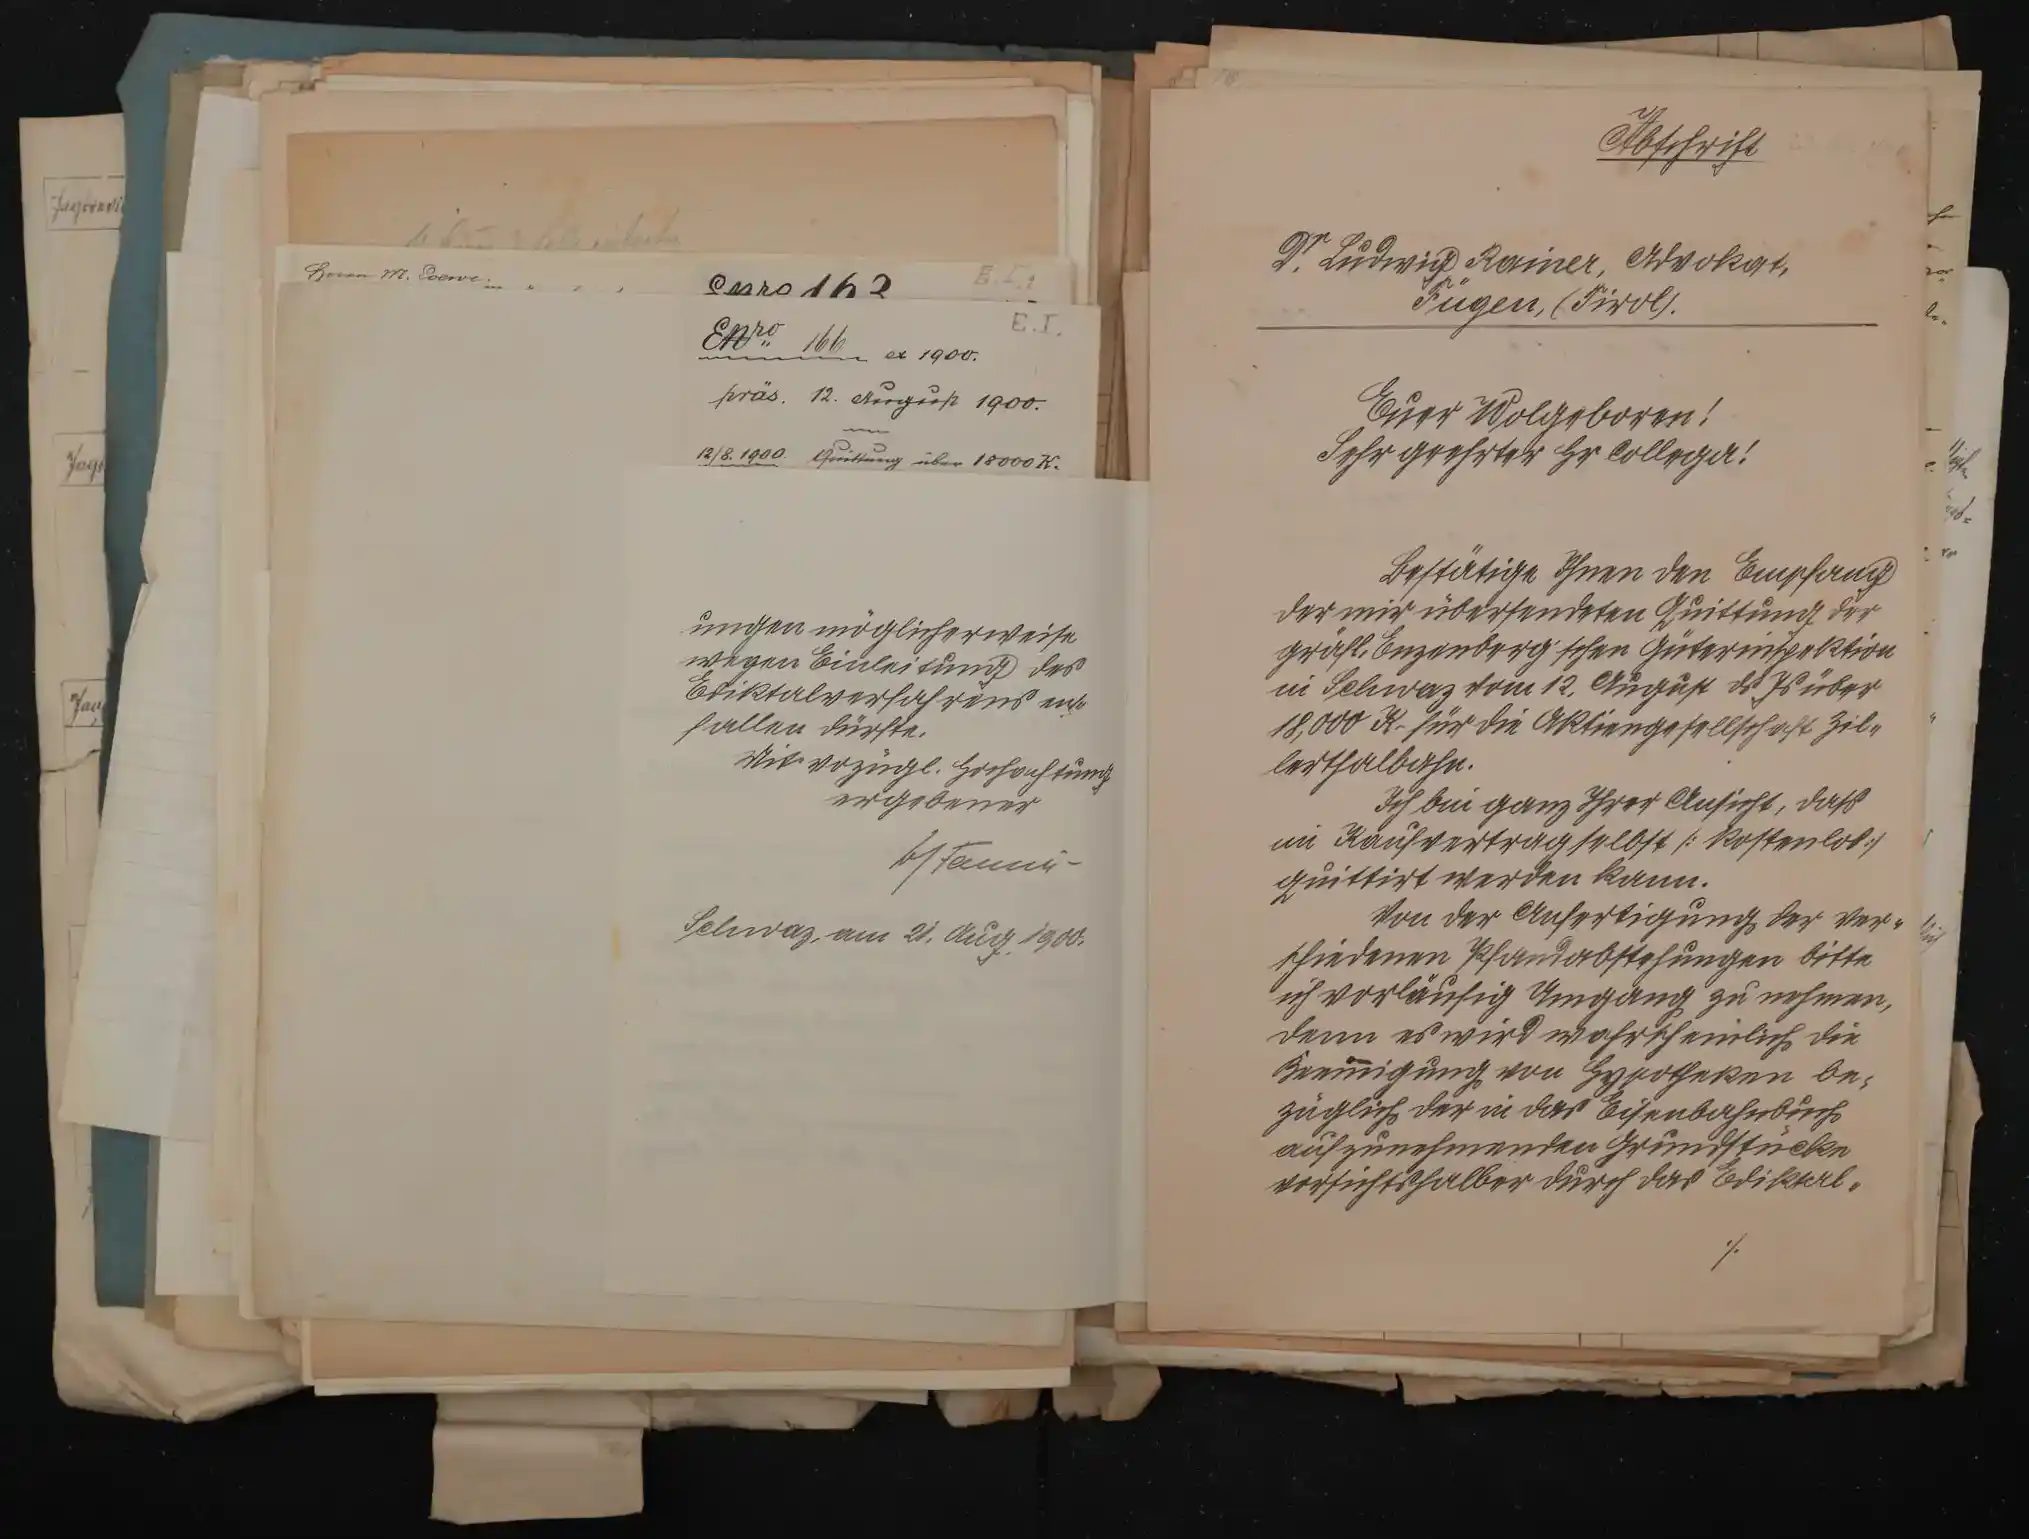 Herrn M.
E. I.
E. I.
Enro 166 ex 1900.
präs. 12. August 1900.
12/8. 1900. Quittung über 18000 K.
ungen möglicherweise
wegen Einleitung des
Ediktalverfahrens ent-
fallen dürfte.
Mit vorzügl. Hochachtung
ergebener
Schwaz, am 21. Aug. 1900.
Abschrift
Dr. Ludwig Rainer, Advokat,
Fügen, (Tirol).
Euer Wolgeboren!
Sehr geehrter Hr Collega!
Bestätige Ihnen den Empfang
der mir übersendeten Quittung der
gräfl. Enzenberg'schen Güterinspektion
in Schwaz vom 12. August ds Js über
18,000 K. für die Aktiengesellschaft Zil-
lerthalbahn.
Ich bin ganz Ihrer Ansicht, daß
im Kaufvertrag selbst /: kostenlos :/
quittirt werden kann.
Von der Anfertigung der ver-
schiedenen Pfandabstehungen bitte
ich vorläufig Umgang zu nehmen,
denn es wird wahrscheinlich die
Reinigung von Hypotheken be-
züglich der in das Eisenbahnbuch
aufzunehmenden Grundstücke
vorsichtshalber durch das Ediktal-
./.